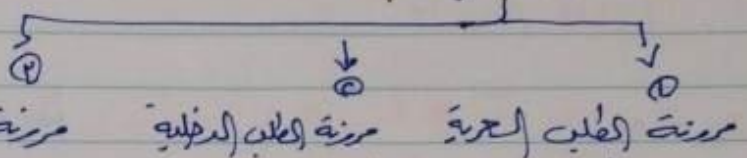 ① ② ③
مرونة الطلب السعرية مرونة الطلب الدخلية مرونة